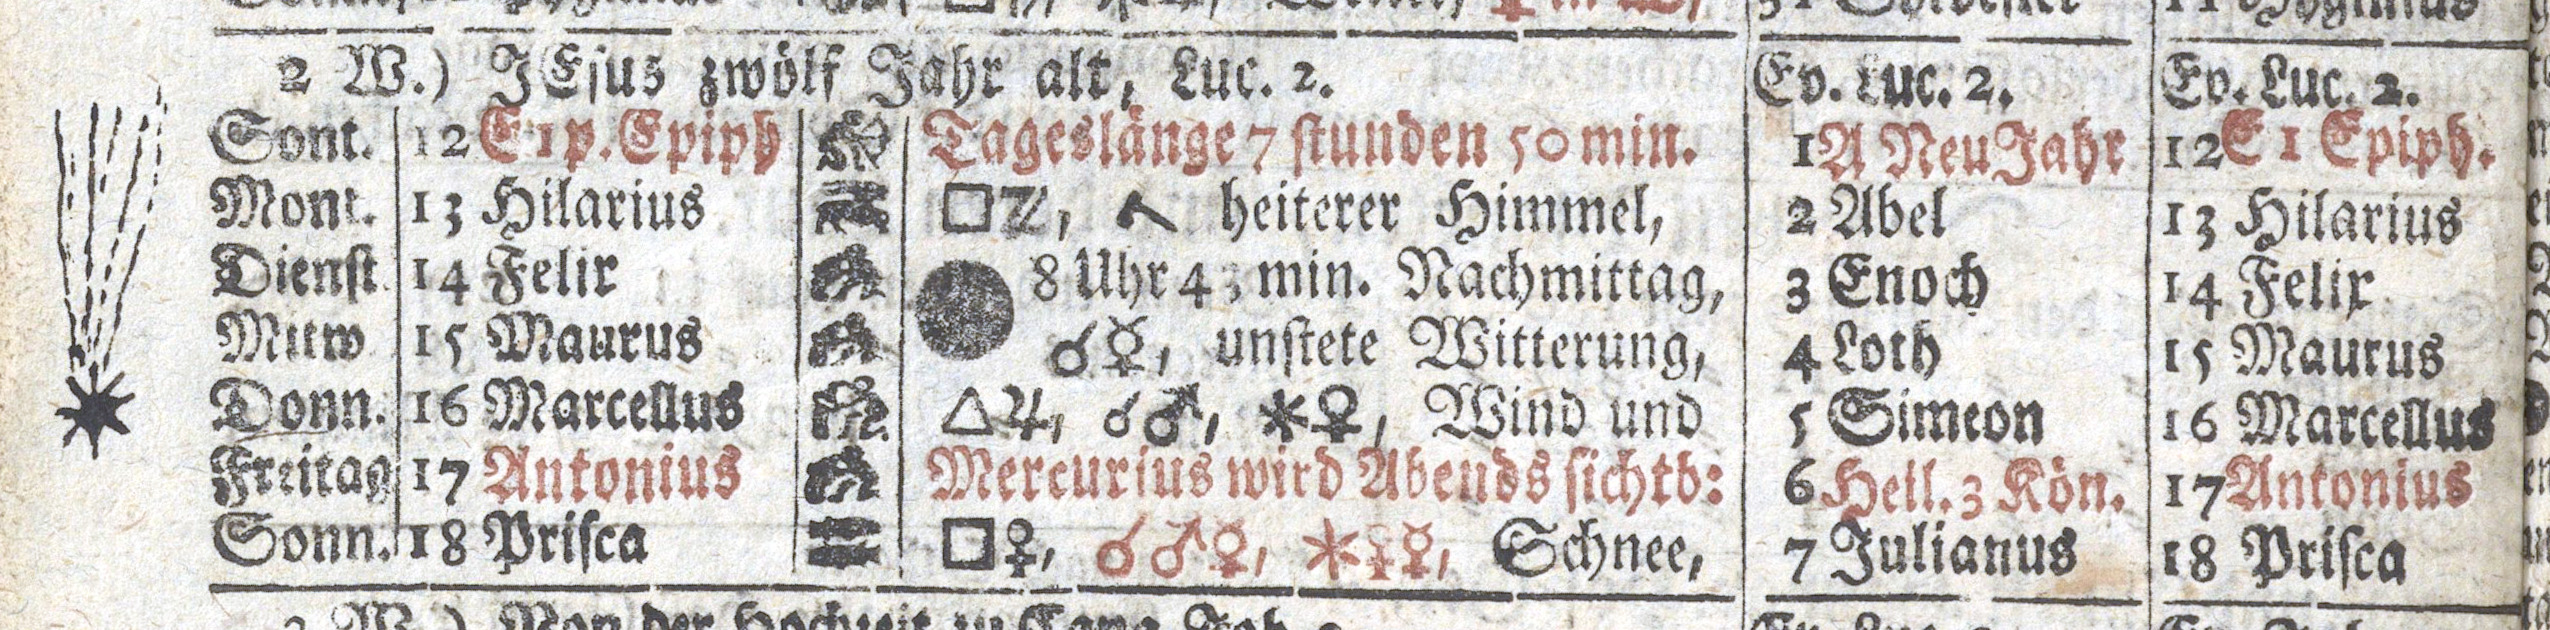 2 W.) JEsus zwölf Jahr alt, Luc. 2.
Ev. Luc. 2.
Ev. Luc. 2.
Sont. 12 E 1 p. Epiph Tageslänge 7 stunden 50 min. 1 A Neu Jahr 12 E 1 Epiph.
Mont. 13 Hilarius □ heiterer Himmel, 2 Abel 13 Hilarius
Dienst 14 Felix 8 Uhr min. Nachmittag, 3 Enoch 14 Felix
Mittw 15 Maurus ☌☿, unstete Witterung, 4 Loth 15 Maurus
Donn. 16 Marcellus △♃, ☌♂, ⚹♀, Wind und 5 Simeon 16 Marcellus
Freitag 17 Antonius Mercurius wird Abends sichtb: 6 Heil. 3 Kön. 17 Antonius
Sonn. 18 Prisca □♀, ☌♂☿, ⚹♀☿, Schnee, 7 Julianus 18 Prisca